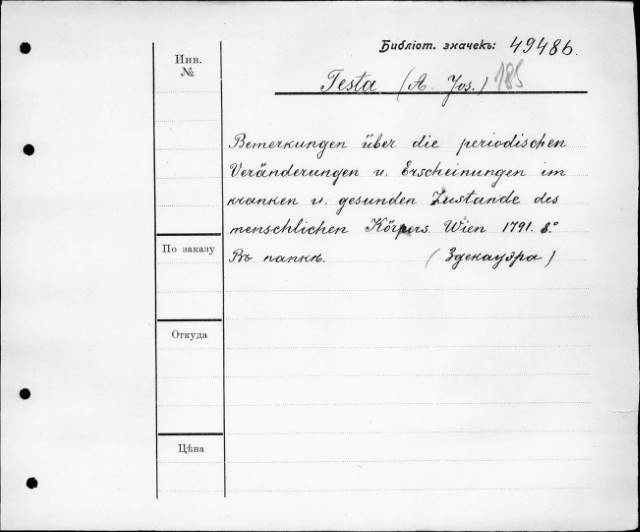 Библіот. значекъ: 49486.
Инв. №
Testa (A Jos.) 185
Bemerkungen über die periodischen
Veränderungen u. Erscheinungen im
kranken u. gesunden Zustande des
menschlichen Körpers. Wien 1791. 8°
Въ папкѣ. (Здекауэра)
По заказу
Откуда
Цѣна